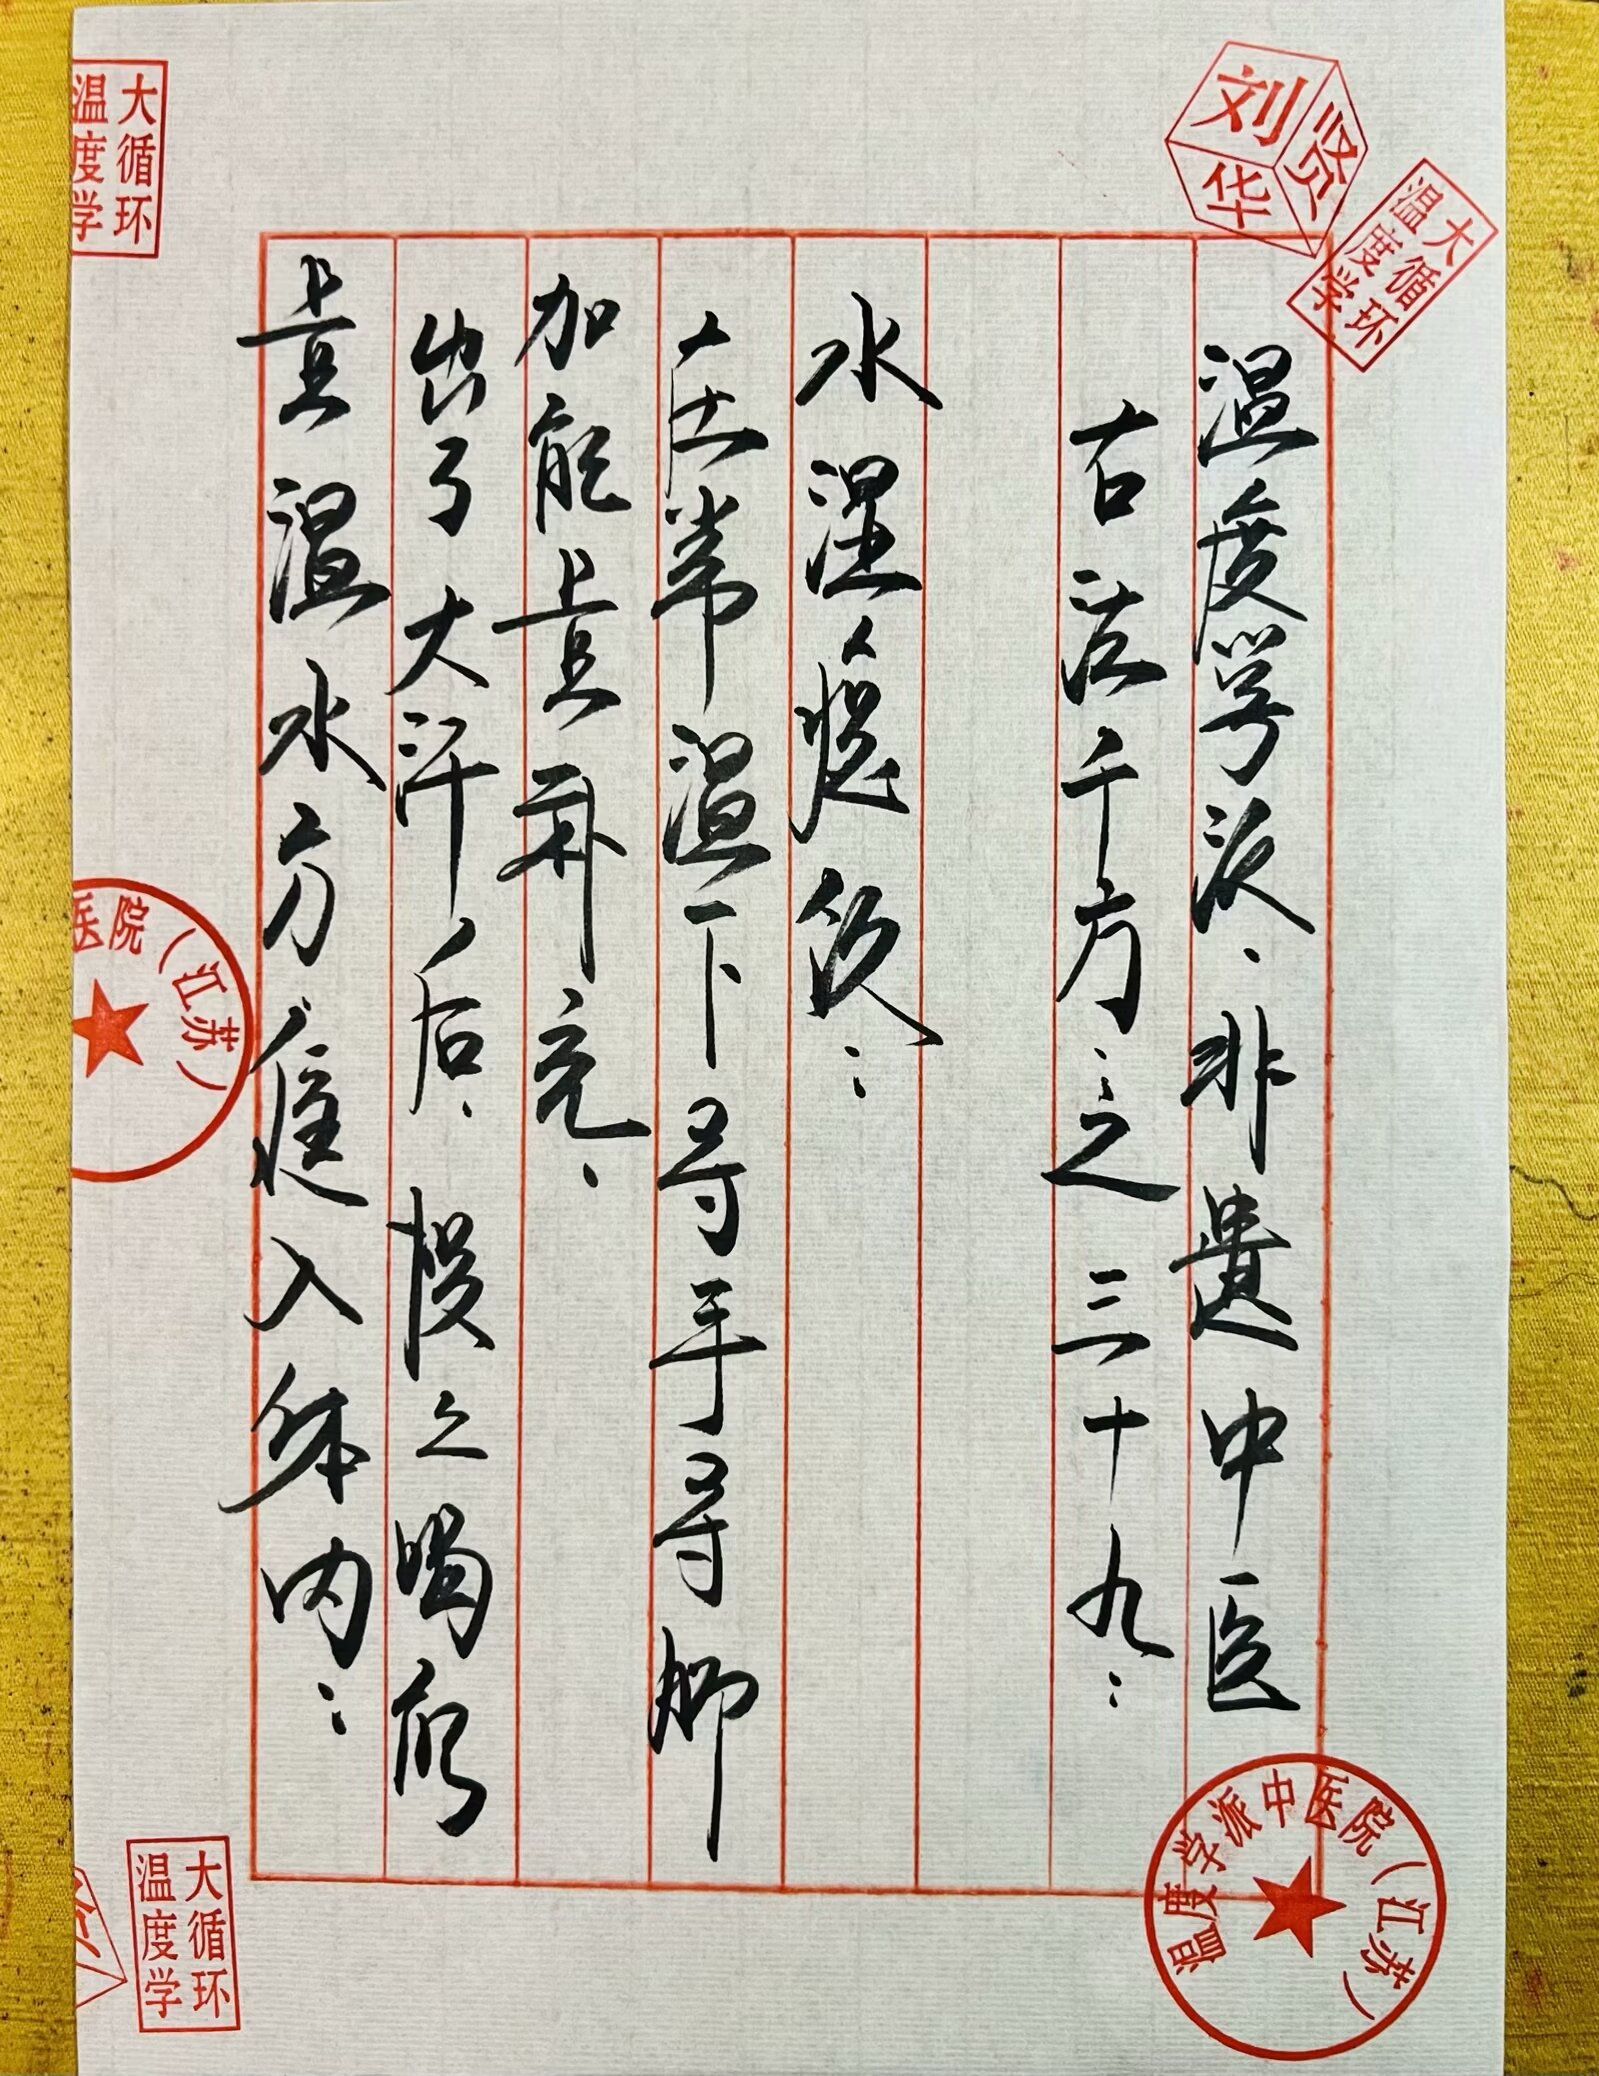 温度学派、非遗中医
古法千方之三十九：
水湿饮：
在常温下导手导脚
加能量补充、
出了大汗后、之喝能
量温水分入体内：
刘贤华
大循环
温度学
大循环
温度学
医院（江苏）
大循环
温度学
温度学派中医院（江苏）